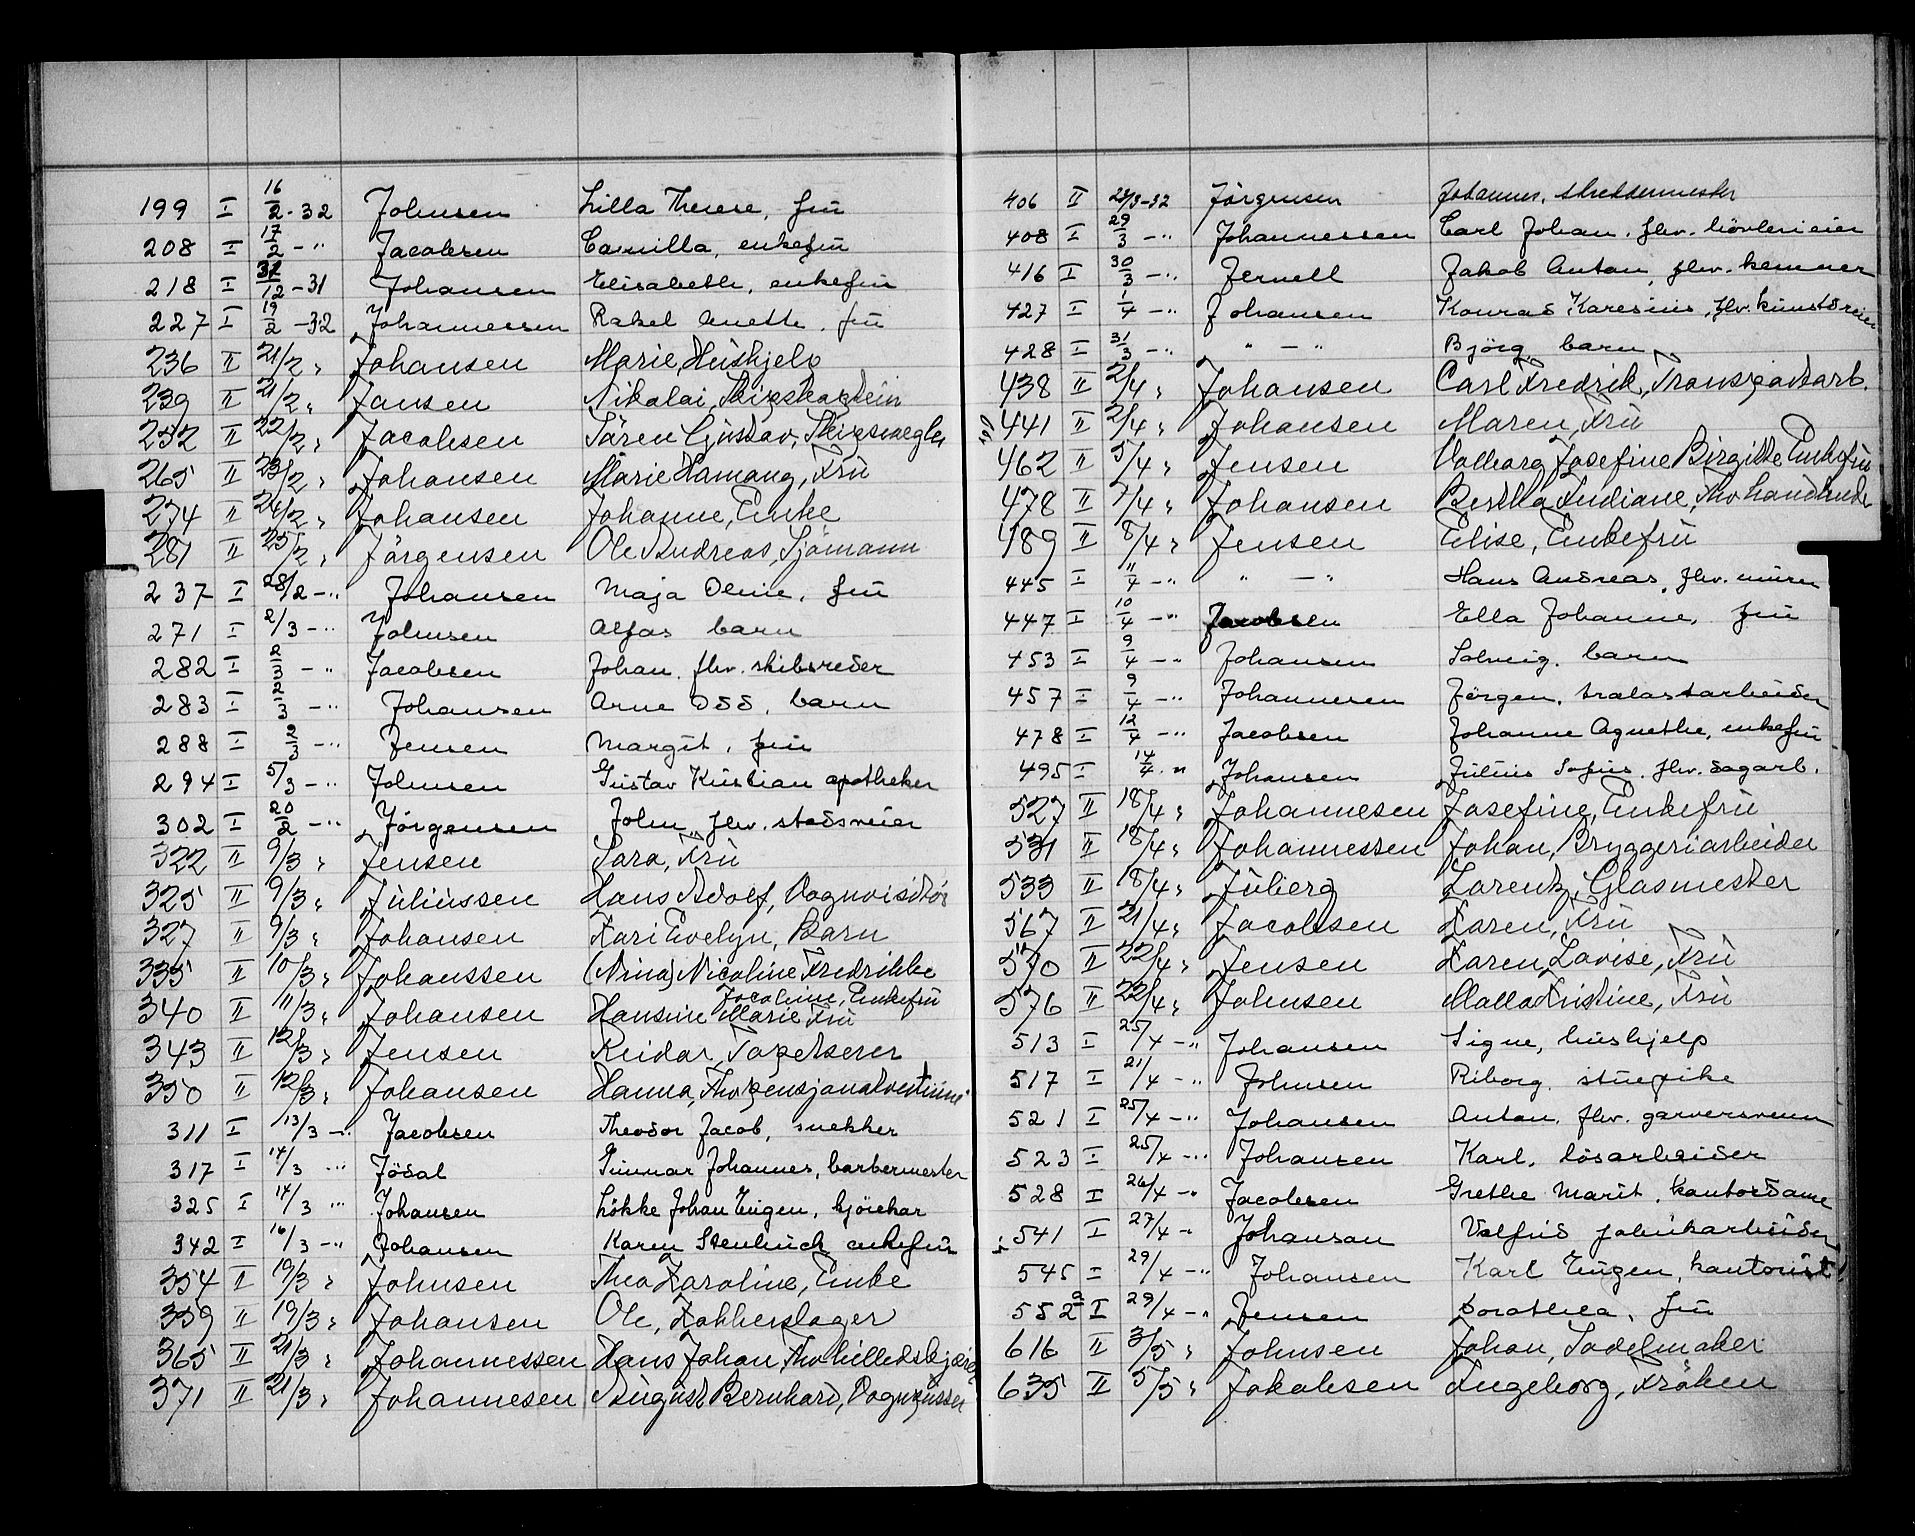 199 I 16/2-32 Johnsen Lilla Therese, fru
208 I 17/2-" Jacobsen Camilla, enkefru
218 I 31/12-31 Johansen Elisabeth, enkefru
227 I 19/2-32 Johannessen Rakel Anette, fru
236 II 21/2 " Johansen Marie, Hushjelp
239 II 21/2 " Jansen Nikolai, Skipskaptein
252 II 22/2 " Jacobsen Sören Gustav, Skipsmegler
265 II 23/2 " Johansen Marie Hamang, Fru
274 II 24/2 " Johansen Johanne, Enke
281 II 25/2 " Jörgensen Ole Andreas, Sjömann
237 I 28/2-" Johansen Maja Oline, fru
271 I 2/3-" Johnsen Alfas barn
282 I 2/3-" Jacobsen Johan, fhv. skibsreder
283 I 2/3-" Johansen Arne Odd, barn
288 I 2/3-" Jensen Margit, fru
294 I 5/3-" Johnsen Gustav Kristian apotheker
302 I 20/2-" Jörgensen John, fhv. stadsveier
322 II 9/3 " Jensen Sara, Fru
325 II 9/3 " Juliussen Hans Adolf, Vognvisitör
327 II 9/3 " Johansen Kari Evelyn, Barn
335 II 10/3 " Johanssen (Nina) Nicoline Fredrikke
Jocobine, Enkefru
340 II 11/3 " Johansen Hansine Marie Fru
343 II 12/3 " Jensen Reidar, Tapetserer
350 II 12/3 " Johansen Hanna, Fhv pensjonatvertinne
311 I 13/3-" Jacobsen Theodor Jacob, snekker
317 I 14/3-" Jödal Gunnar Johannes, barbermester
325 I 14/3 " Johansen Lökke Johan Eugen, kjörekar
342 I 16/3-" Johansen Karen Stenbuch enkefru
354 II 19/3 " Johnsen Thea Karoline, Enke
359 II 19/3 " Johansen Ole, Kobberslager
365 II 21/3 " Johannessen Hans Johan, Fhv billedskjærer
371 II 21/3 " Johannesen August Bernhard, Vognpusser
406 II 24/3-32 Jörgensen Johannes, skreddermester
408 I 29/3-" Johannessen Carl Johan, fhv. hövlerieier
416 I 30/3-" Jernell Jakob Anton, fhv. kemner
427 I 1/4-" Johansen Konrad Karesius, fhv. kunstdreier
428 I 31/3-" " - " Bjørg, barn
438 II 2/4 " Johansen Carl Fredrik, Trævaregadsarb.
441 II 2/4 " Johansen Maren, Fru
462 II 5/4 " Jensen Valborg Josefine Birgitte Enkefru
478 II 7/4 " Johansen Bertha Indiane, Fhv handlende
489 II 8/4 " Jensen Elise, Enkefru
445 I 11/4-" " - " Hans Andreas, fhv. murer
447 I 10/4-" Jacobsen Ella Johanne, fru
453 I 9/4-" Johansen Solveig, barn
457 I 9/4-" Johannesen Jörgen, tralastarbeider
478 I 12/4-" Jacobsen Johanne Agnethe, enkefru
495 I 14/4-" Johansen Julius Sofus, fhv. sagarb.
527 II 18/4 " Johannesen Josefine, Enkefru
531 II 18/4 " Johannessen Johan, Bryggeriarbeider
533 II 18/4 " Juberg Lorentz, Glasmester
567 II 21/4 " Jacobsen Karen, Fru
570 II 22/4 " Jensen Karen Lovise, Fru
576 II 22/4 " Johnsen Malla Kristine, Fru
513 I 25/4-" Johansen Signe, hushjelp
517 I 21/4-" Johnsen Riborg, stuepike
521 I 25/4-" Johansen Anton, fhv. garversvenn
523 I 25/4-" Johansen Karl, lösarbeider
528 I 26/4-" Jacobsen Grethe Marit, kontordame
541 I 27/4-" Johanson Valfrid fabrikarbeider
545 I 29/4-" Johansen Karl Eugen, kontorist
552a I 29/4-" Jensen Dorothea, fru
616 II 3/5 " Johnsen Johan, Sadelmaker
635 II 5/5 " Jakobsen Ingeborg, Fröken